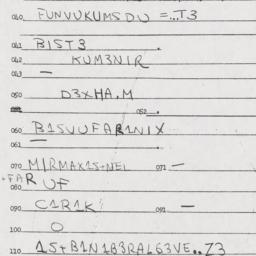 040 FUNVUKUMSDU =...T3
041 BIST3
042 KUM3NIR
043 —
050 D3XHA.M
052
060 B1SVUFAR1NIX
070 M/RMAX1S+NEL 071 —
+FAR UF
080
090 C1R1K 091 —
100 O
110 1S+B1N1B3RAL63VE..Z3